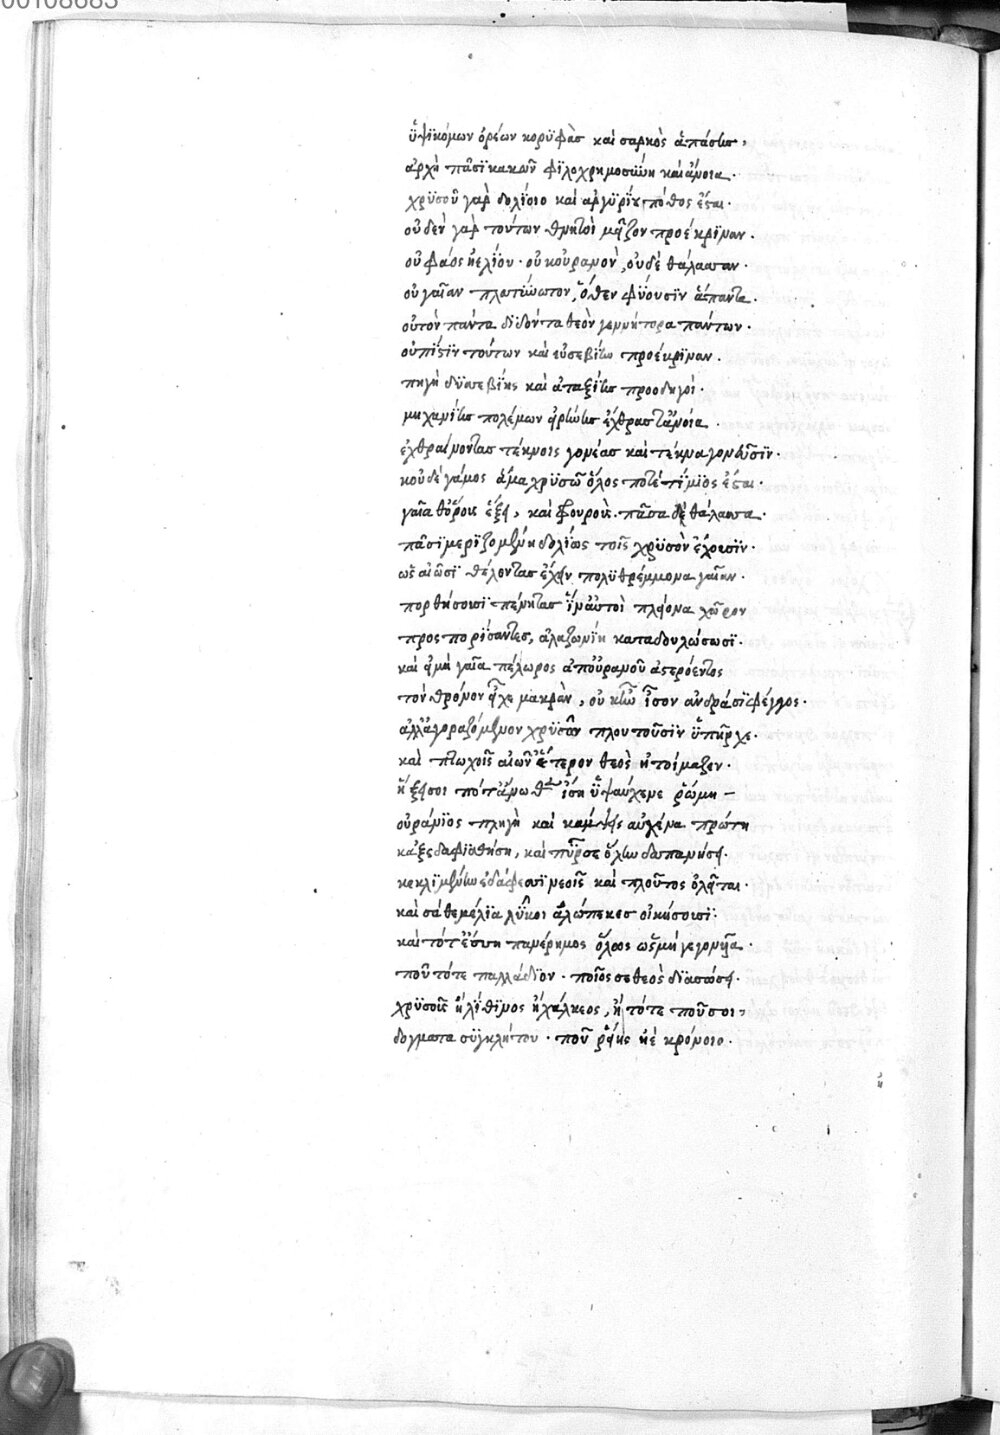 00108683
ὑψικόμων ὀρέων κορυφὰς καὶ σαρκὸς ἁπάσης,
ἀρχὴ πᾶσι κακῶν φιλοχρημοσύνη καὶ ἄνοια.
χρυσοῦ γὰρ δολίοιο καὶ ἀργυρίου πόθος ἔσται.
οὐδὲν γὰρ τούτων θνητοὶ μεῖζον προέκριναν.
οὐ φάος ἠελίου. οὐκ οὐρανὸν, οὐδὲ θάλασσαν.
οὐ γαῖαν πλατύνωτον, ὅθεν φύουσιν ἅπαντα.
οὐ τὸν πάντα διδόντα θεὸν γεννήτορα πάντων.
οὐ πίστιν τούτων καὶ εὐσεβίην προέκριναν.
πηγὴ δυσσεβίης καὶ ἀταξίης προοδηγοὶ.
μηχανίης πολέμων εἰρήνης ἐχθρὰς τ' ἄνοια.
ἐχθραίνοντας τέκνοις γονέας καὶ τέκνα γονεῦσιν.
κοὐδὲ γάμος ἅμα χρυσῶ ὅλος ποτὲ τίμιος ἔσται.
γαῖα θ' ὅρους ἕξει, καὶ φρουροὺς πᾶσα δὲ θάλασσα.
πᾶσι μεριζομένη δολίως τοῖς χρυσὸν ἔχουσιν.
ὡς αἰῶσι θέλοντας ἔχειν πολυθρέμμονα γαῖαν.
πορθήσουσι πένητας ἵν' αὐτοὶ πλείονα χῶρον
προςπορίσαντες, ἀλαζωνίη καταδουλώσωσι.
καὶ εἰ μὴ γαῖα πέλωρος ἀπ' οὐρανοῦ ἀστερόεντος
τὸν θρόνον εἶχε μακρὰν, οὐκ ἦν ἶσον ἀνδράσι φέγγος.
ἀλλ' ἀγοραζόμενον χρυσὸν πλουτοῦσιν ὑπῆρχε.
καὶ πτωχοῖς αἰῶν' ἕτερον θεὸς ἡτοίμαζεν.
ἥξει σοι ποτ' ἄνωθεν ἴση ὑψαύχενε ῥώμη
οὐράνιος πληγὴ καὶ κάμψεις αὐχένα πρώτη
κἀξεδαφισθήση, καὶ πῦρ σε ὅλην δαπανήσει.
κεκλιμένην ἐδάφεσσι νεοῖς καὶ πλοῦτος ὀλεῖται.
καὶ σὰ θεμέλια λύκοι ἀλώπεκες οἰκήσουσι.
καὶ τότ' ἔσση πανέρημος ὅλως ὡς μὴ γεγονεῖα.
ποῦ τότε παλλάδιον. ποῖος σε θεὸς διασώσει.
χρυσοῦς ἢ λίθινος ἢ χάλκεος, ἢ τότε ποῦ σοι,
δόγματα συγκλήτου. ποῦ ῥείης ἠὲ κρόνοιο.